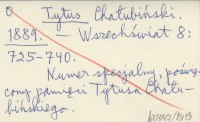 O Tytus Chałubiński.
1889. — Wszechświat 8:
725-740.
Numer specjalny, poświę-
cony pamięci Tytusa Chału-
bińskiego.